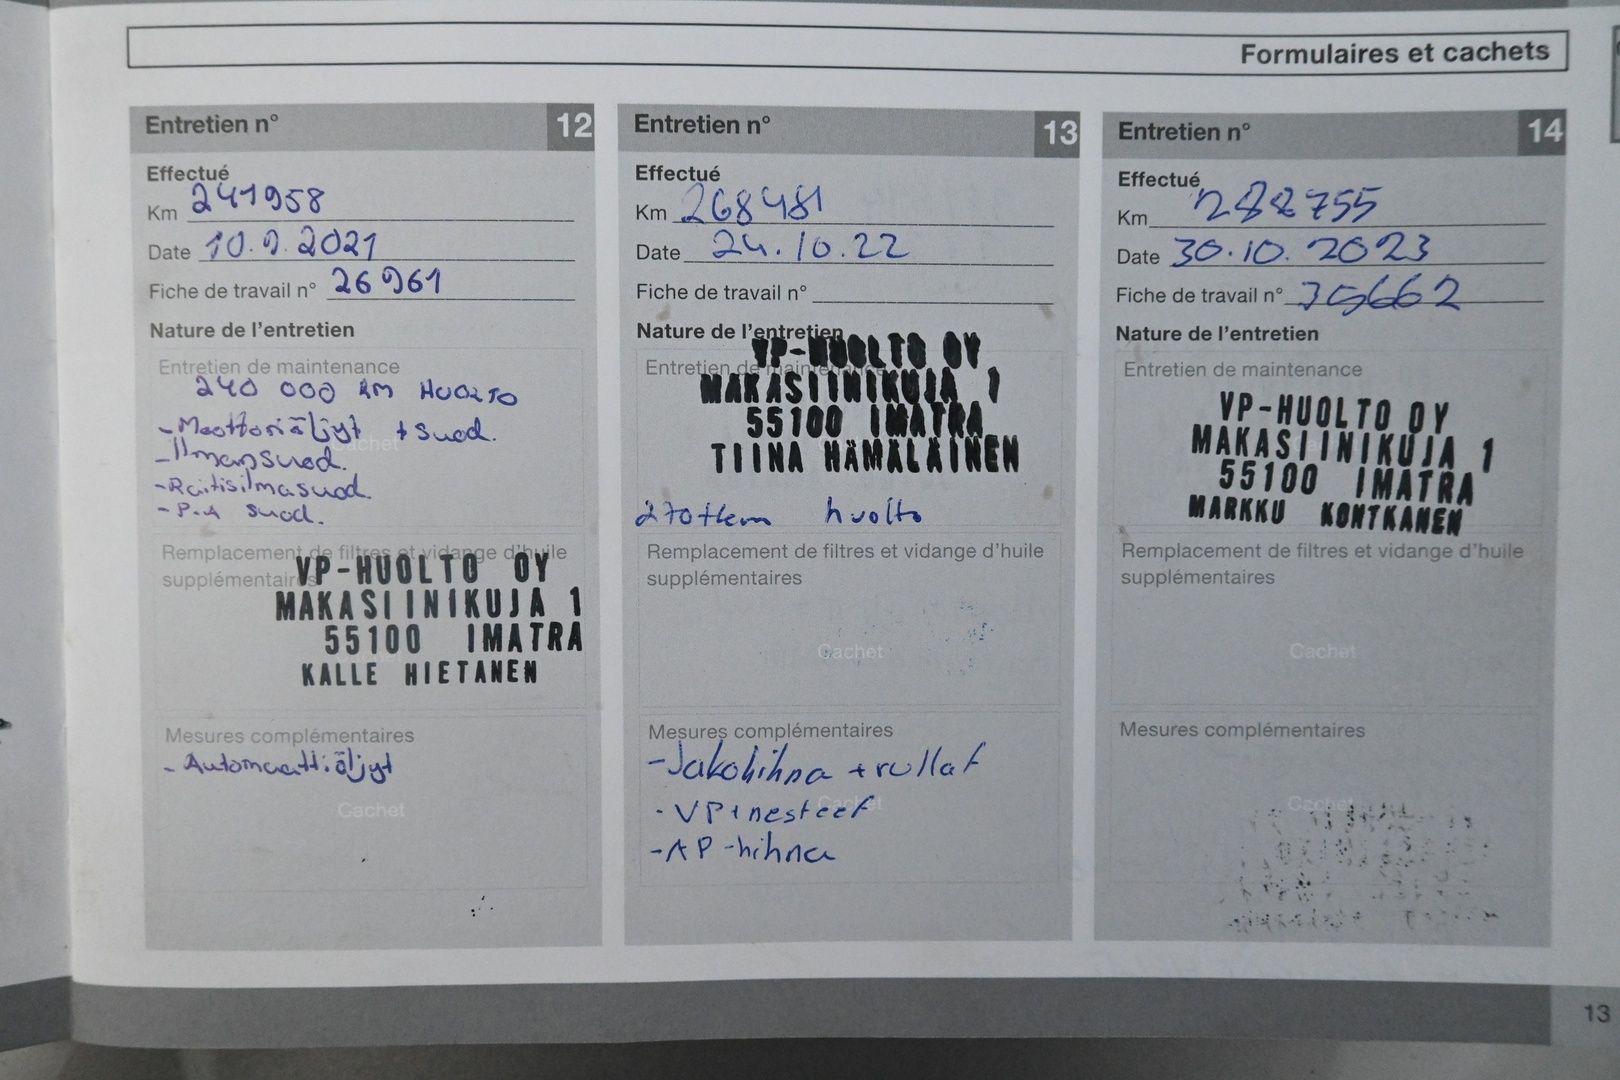 Formulaires et cachets
Entretien n° 12
Effectué
Km 241958
Date 10.9.2021
Fiche de travail n° 26961
Nature de l'entretien
Entretien de maintenance
240 000 KM HUOLTO
- Moottoriöljyt + suod.
- Ilmansuod.
- Raitisilmasuod.
- P.A suod.
Cachet
Remplacement de filtres et vidange d'huile
supplémentaires
VP-HUOLTO OY
MAKASIINIKUJA 1
55100 IMATRA
KALLE HIETANEN
Mesures complémentaires
- Automaattiöljyt
Cachet
Entretien n° 13
Effectué
Km 268481
Date 24.10.22
Fiche de travail n°
Nature de l'entretien
Entretien de maintenance
VP-HUOLTO OY
MAKASIINIKUJA 1
55100 IMATRA
TIINA HÄMÄLÄINEN
270tkm huolto
Remplacement de filtres et vidange d'huile
supplémentaires
Cachet
Mesures complémentaires
- Jakohihna + rullat
- VP+nesteet
- AP-hihna
Cachet
Entretien n° 14
Effectué
Km 288755
Date 30.10.2023
Fiche de travail n° 35662
Nature de l'entretien
Entretien de maintenance
VP-HUOLTO OY
MAKASIINIKUJA 1
55100 IMATRA
MARKKU KONTKANEN
Remplacement de filtres et vidange d'huile
supplémentaires
Cachet
Mesures complémentaires
Cachet
13